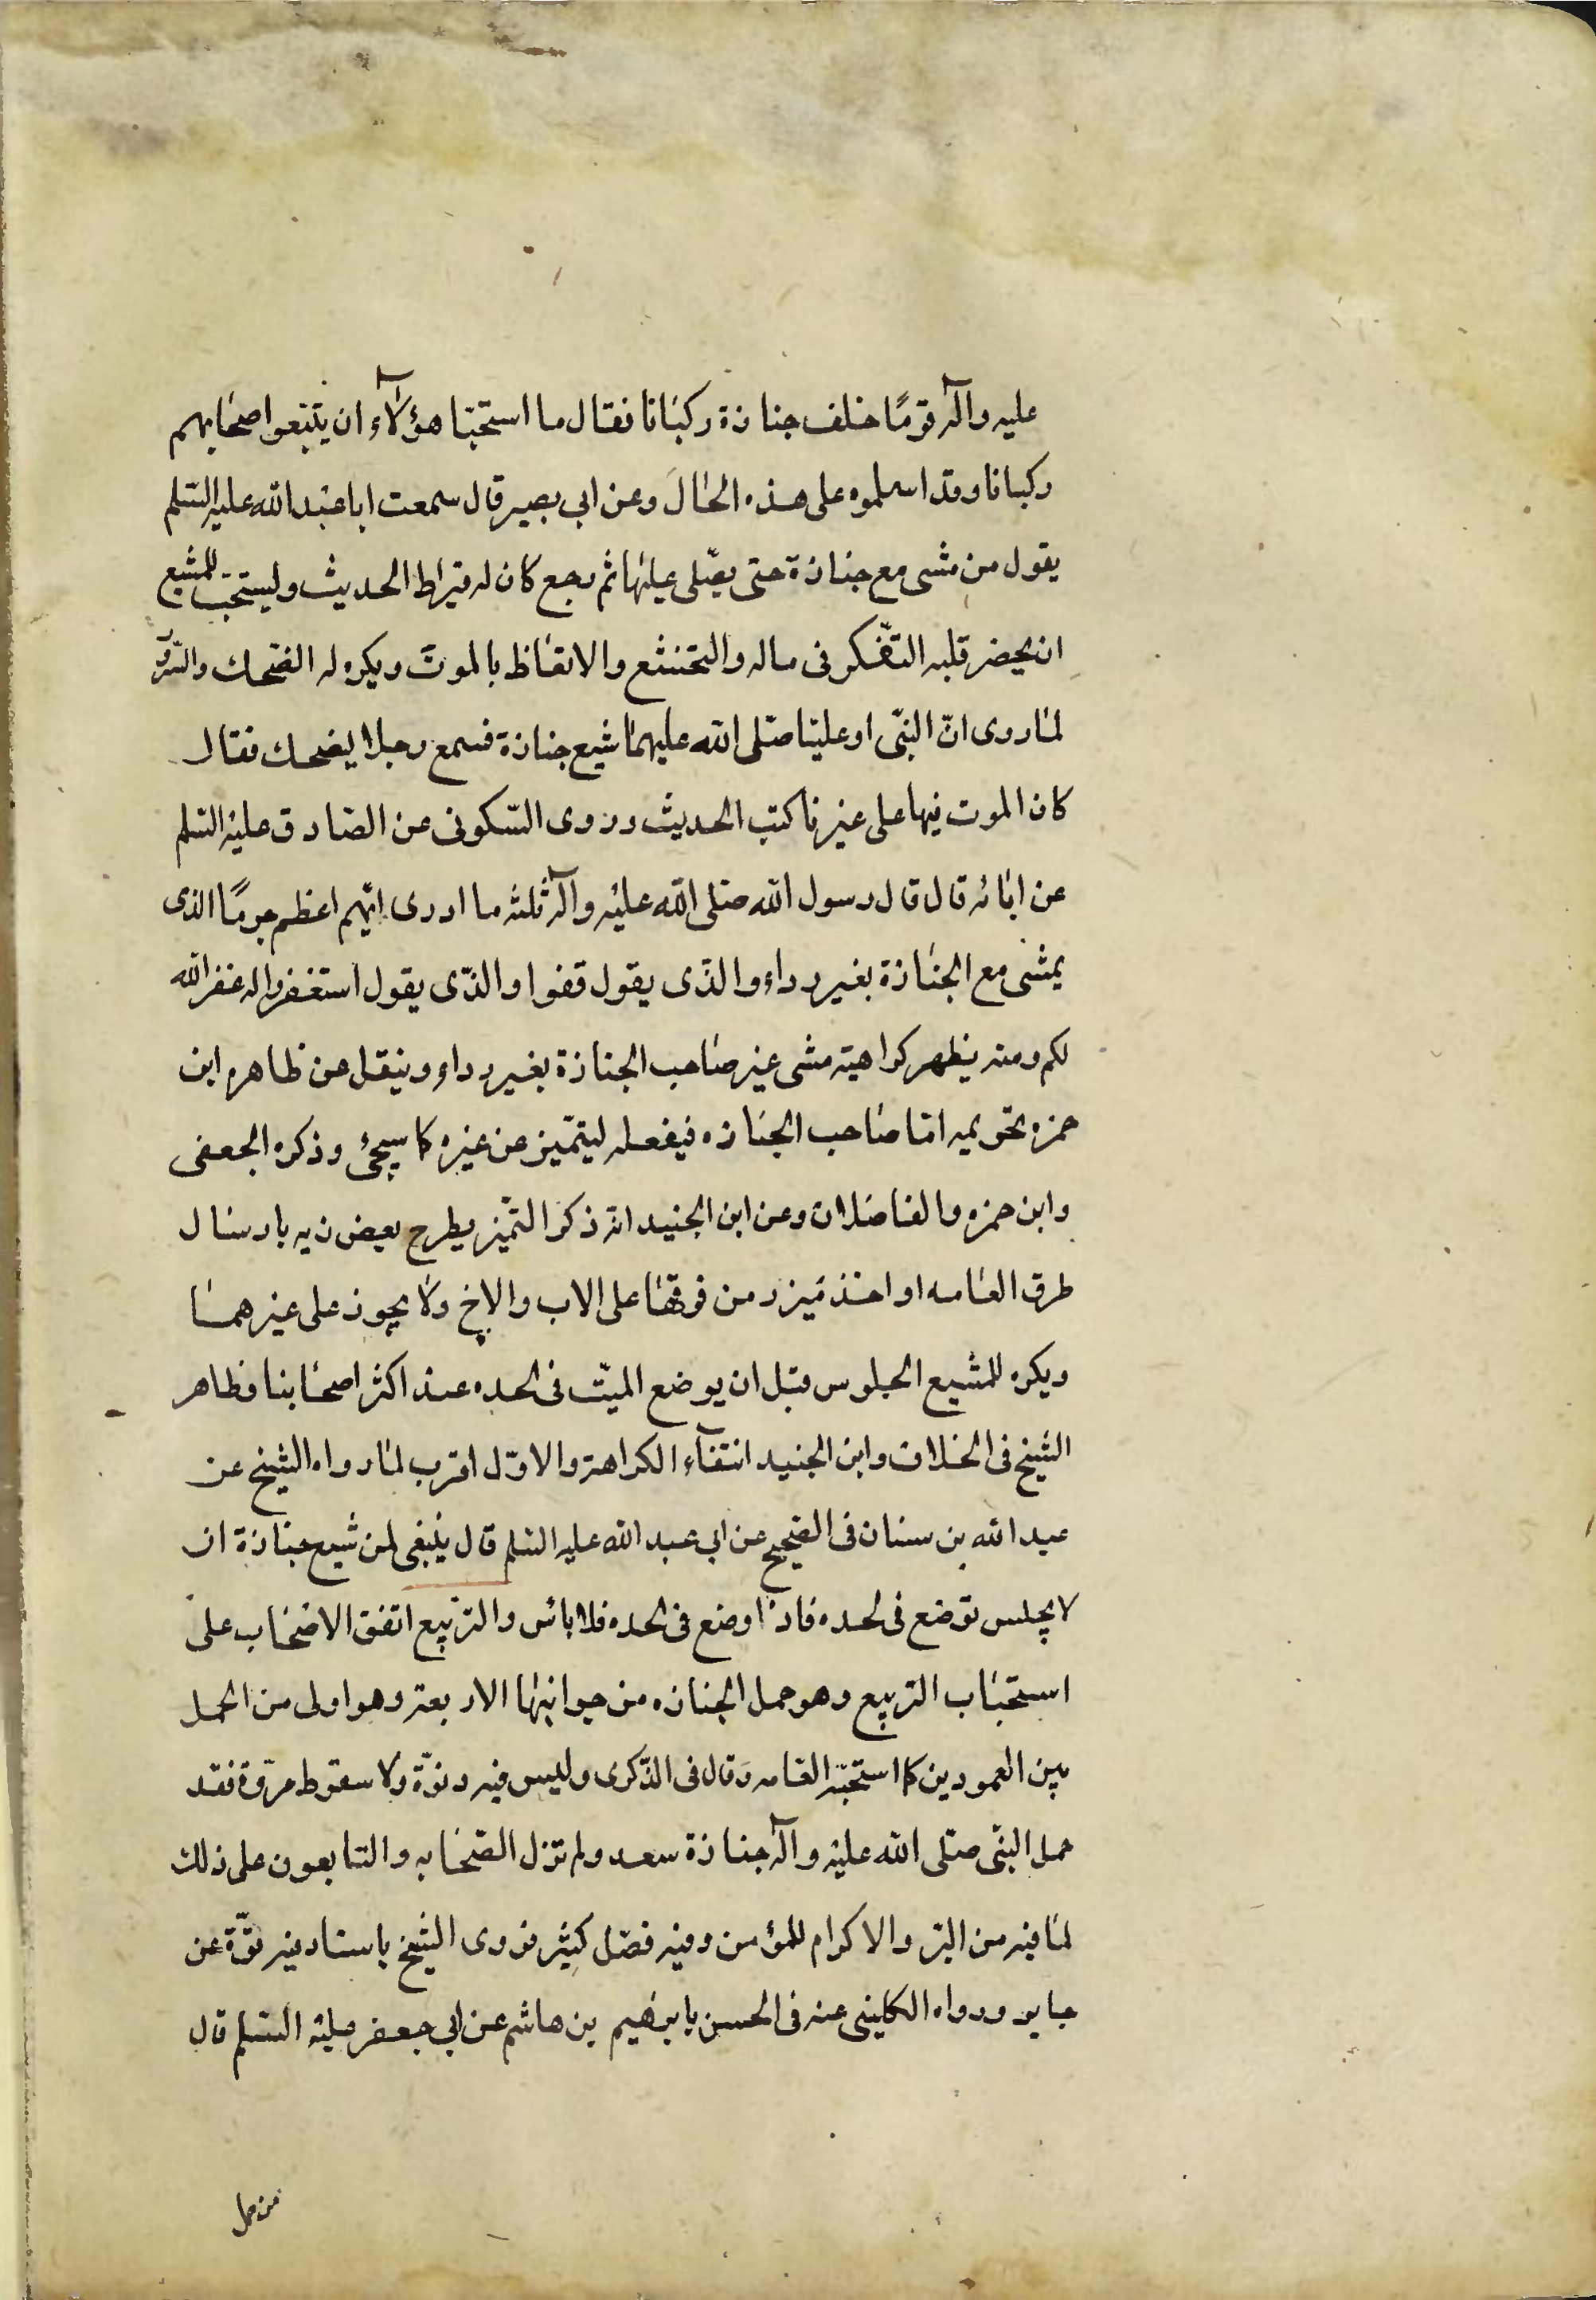 عليه وآله قومًا خلف جنازة ركبانا فقال ما استحبّا هؤلآء ان يتبعوا اصحابهم
ركبانا وقد اسلموه على هذه الحال وعن ابي بصير قال سمعت ابا عبد الله عليه السّلم
يقول من مشى مع جنازة حتى يصّلى عليها ثم رجع كان له قيراط الحديث وليستحبّ للمشيع
ان يحضر قلبه التفّكر فى ماله والتخشع والاتعاظ بالموت ويكره له الضحك
لما روى انّ النبّى او عليّا صلى الله عليهما شيع جنازة فسمع رجلا يضحك فقال
كان الموت فيها على غيرنا كتب الحديث وروى السّكونى عن الصّادق عليه السّلم
عن ابائه قال قال رسول الله صلى الله عليه وآله ثلثه ما ادرى ايّهم اعظم جرمًا الذى
يمشى مع الجنازة بغير رداء والذّى يقول قفوا والذّى يقول استغفروا له غفر الله
لكم ومنه يظهر كراهية مشى غير صاحب الجنازة بغير رداء وينقل عن ظاهر ابن
حمزه تحريمه امّا صاحب الجنازه فيفعله ليتمّيز عن غيره كما سيجئ وذكره الجعفى
وابن حمزه والفاضلان وعن ابن الجنيد انّه ذكر التمّيز بطرح بعض زيه بارسال
طرف العامه او اخذ ميزر من فوقها على الاب والاخ ولا يجوز على غيرهما
ويكره للمشيع الجلوس قبل ان يوضع الميّت فى لحده عند اكثر اصحابنا وظاهر
الشيخ فى الخلاف وابن الجنيد انتفآء الكراهة والاوّل اقرب لما رواه الشيخ عن
عبد الله بن سنان فى الصّحيح عن ابي عبد الله عليه السّلم قال ينبغى لمن شيع جنازة ان
لا يجلس توضع فى لحده فاذا وضع فى لحده فلا بائس والترّبيع اتفق الاصحاب على
استحباب التربيع وهو حمل الجنازه من جوانبها الاربعة وهو اولى من الحمل
بين العمودين كما استحبّه العامه وقال فى الذّكرى وليس فيه دنوّة ولا سقوط مرّوة فقد
حمل النبّى صلى الله عليه وآله جنازة سعد ولم تزل الصّحابه والتابعون على ذلك
لما فيه من البّر والاكرام للمؤمن وفيه فضل كثير فروى الشيخ باسناد فيه قوّة عن
جابر ورواه الكلينى عنه فى الحسن بابرهيم بن هاشم عن ابي جعفر عليه السّلم قال
من حمل